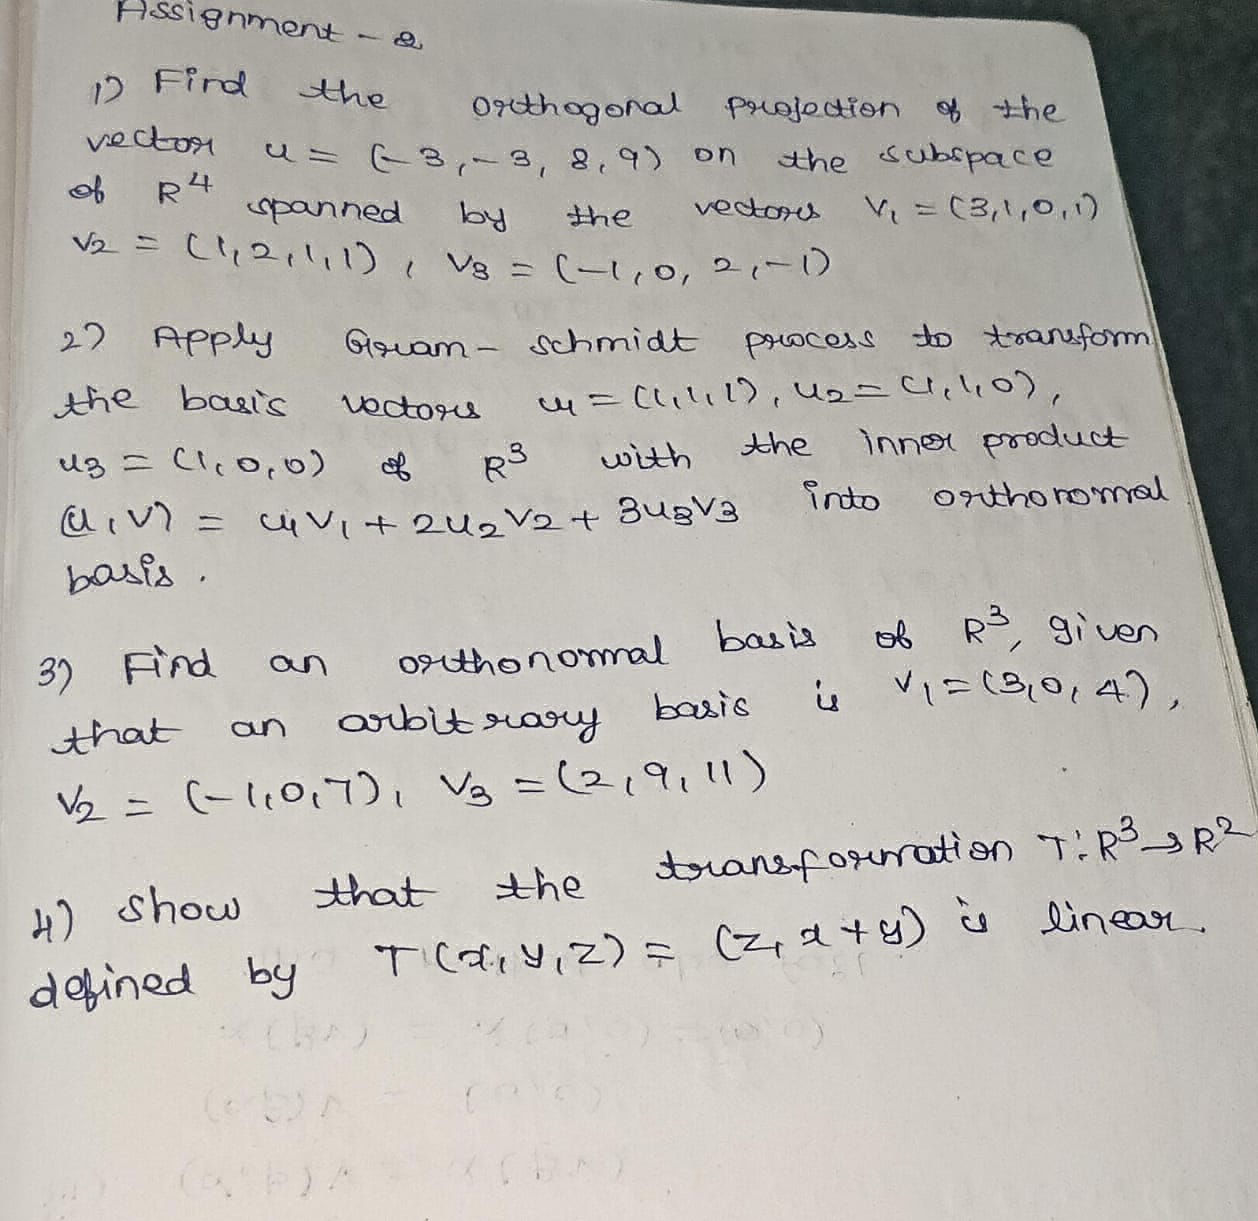 Assignment - 2
1) Find the orthogonal projection of the
vector u = (-3, -3, 8, 9) on the subspace
of R⁴ spanned by the vectors V₁ = (3,1,0,1)
V₂ = (1,2,1,1), V₃ = (-1,0, 2,-1)
2) Apply Gram- schmidt process to transform
the basis vectors u₁ = (1,1,1), u₂ = (1,1,0),
u₃ = (1,0,0) of R³ with the inner product
(u,v) = u₁v₁ + 2u₂v₂ + 3u₃v₃ into orthonormal
basis.
3) Find an orthonormal basis of R³, given
that an arbitrary basis is V₁ = (3,0,4),
V₂ = (-1,0,7), V₃ = (2,9,11)
4) show that the transformation T: R³ → R²
defined by T(x,y,z) = (z, x+y) is linear.